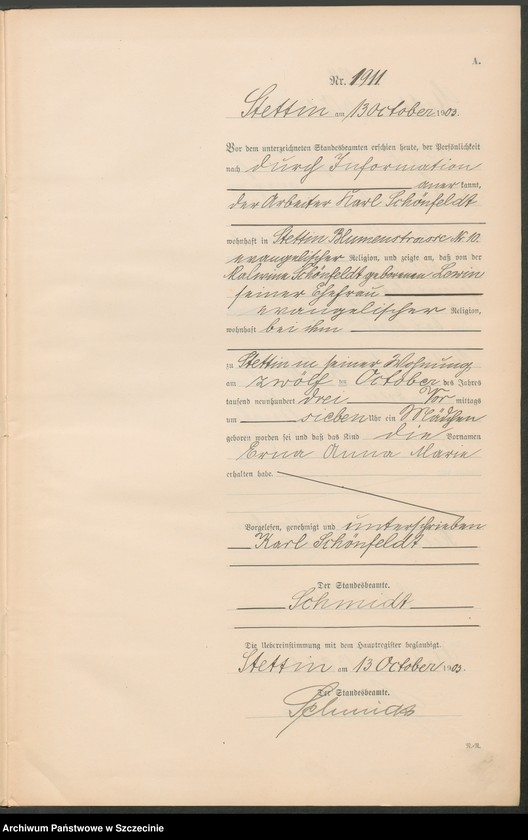 A.
Nr. 1911
Stettin am 13 October 1903.
Vor dem unterzeichneten Standesbeamten erschien heute, der Persönlichkeit
nach durch Information
aner kannt,
der Arbeiter Karl Schönfeldt
wohnhaft in Stettin Blumenstrasse Nr. 10.
evangelischer Religion, und zeigte an, daß von der
Malwine Schönfeldt geborenen Lewin
seiner Ehefrau
evangelischer Religion,
wohnhaft bei ihm
zu Stettin in seiner Wohnung
am zwölf ten October des Jahres
tausend neunhundert drei Vor mittags
um sieben Uhr ein Mädchen
geboren worden sei und daß das Kind die Vornamen
Erna Anna Marie
erhalten habe.
Vorgelesen, genehmigt und unterschrieben
Karl Schönfeldt
Der Standesbeamte.
Schmidt
Die Uebereinstimmung mit dem Hauptregister beglaubigt.
Stettin am 13 October 1903.
Der Standesbeamte.
Schmidt
Archiwum Państwowe w Szczecinie